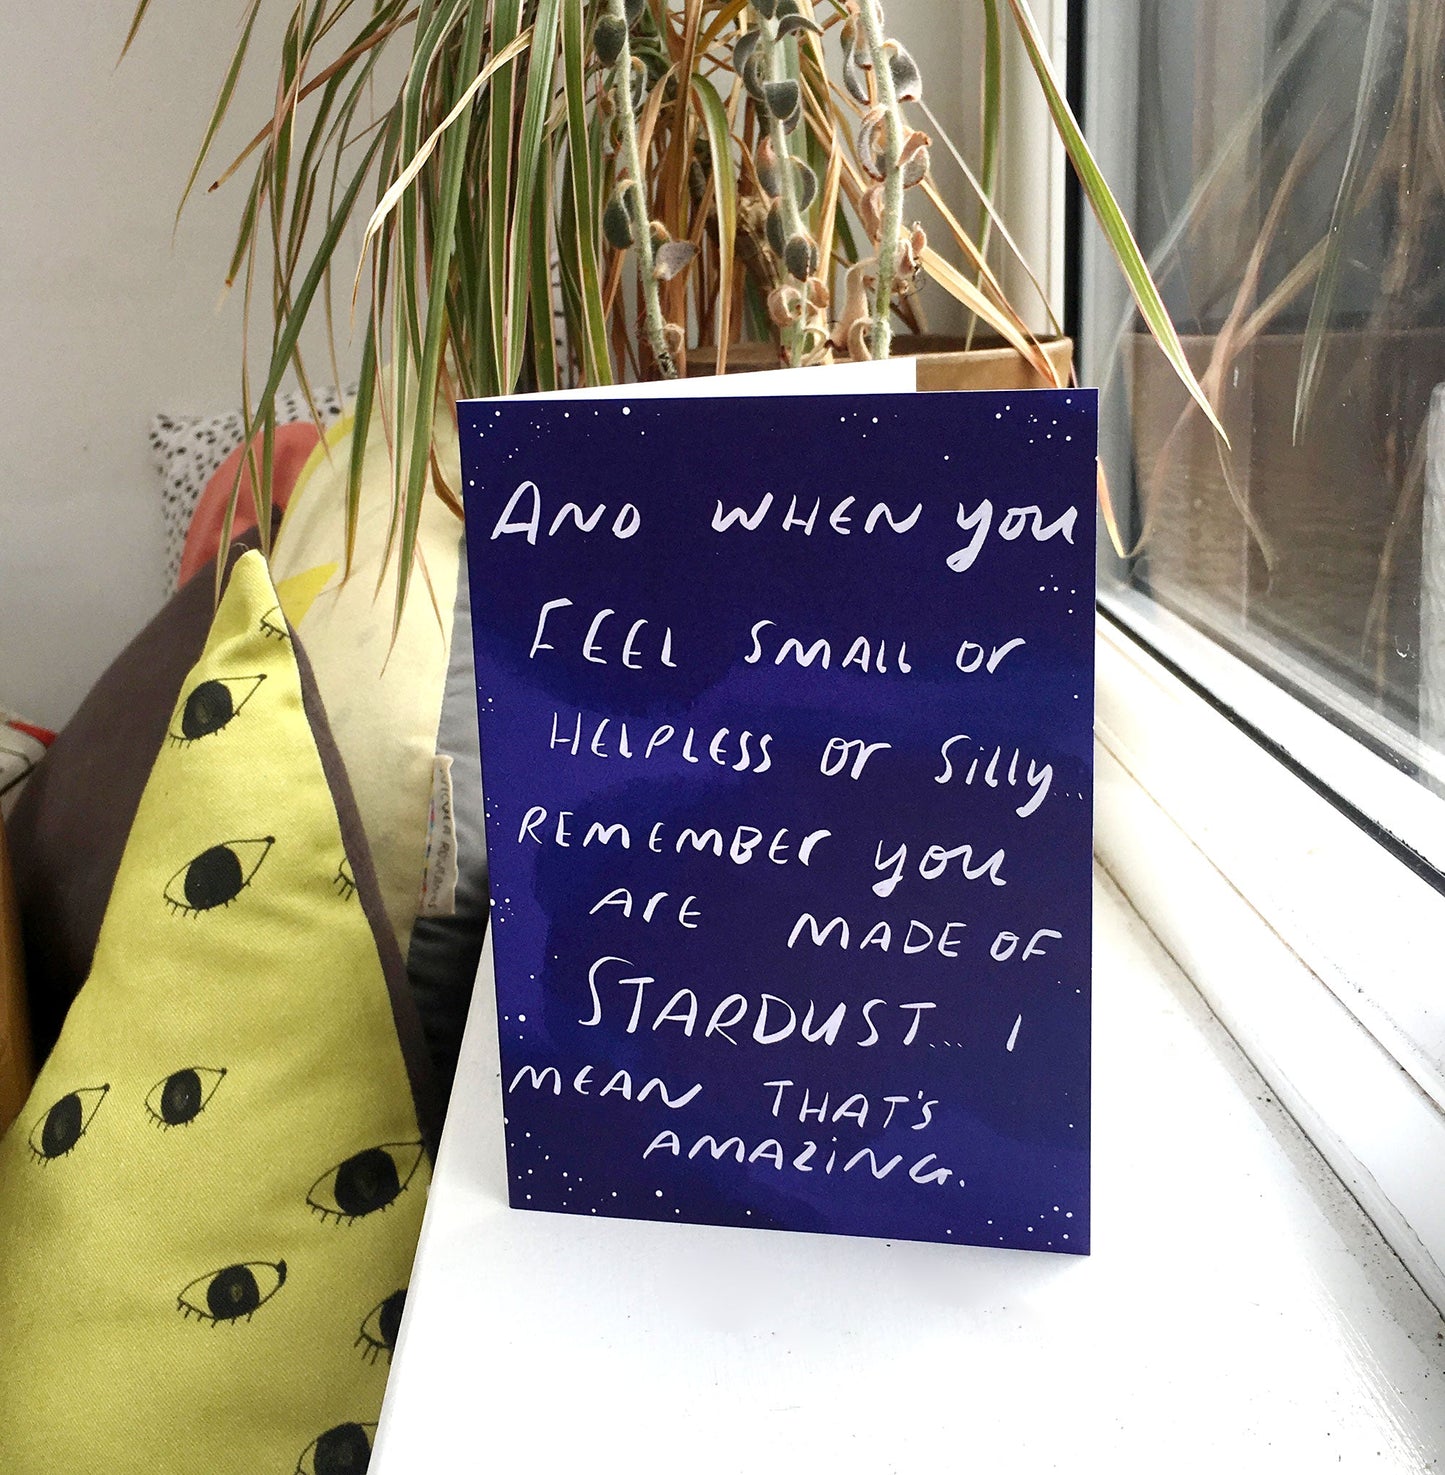 AND WHEN YOU
FEEL SMALL Or
HELPLESS Or Silly...
REMEMBEr YOU
ArE MADE OF
STARDUST... I
MEAN THAT'S
AMAZiNG.